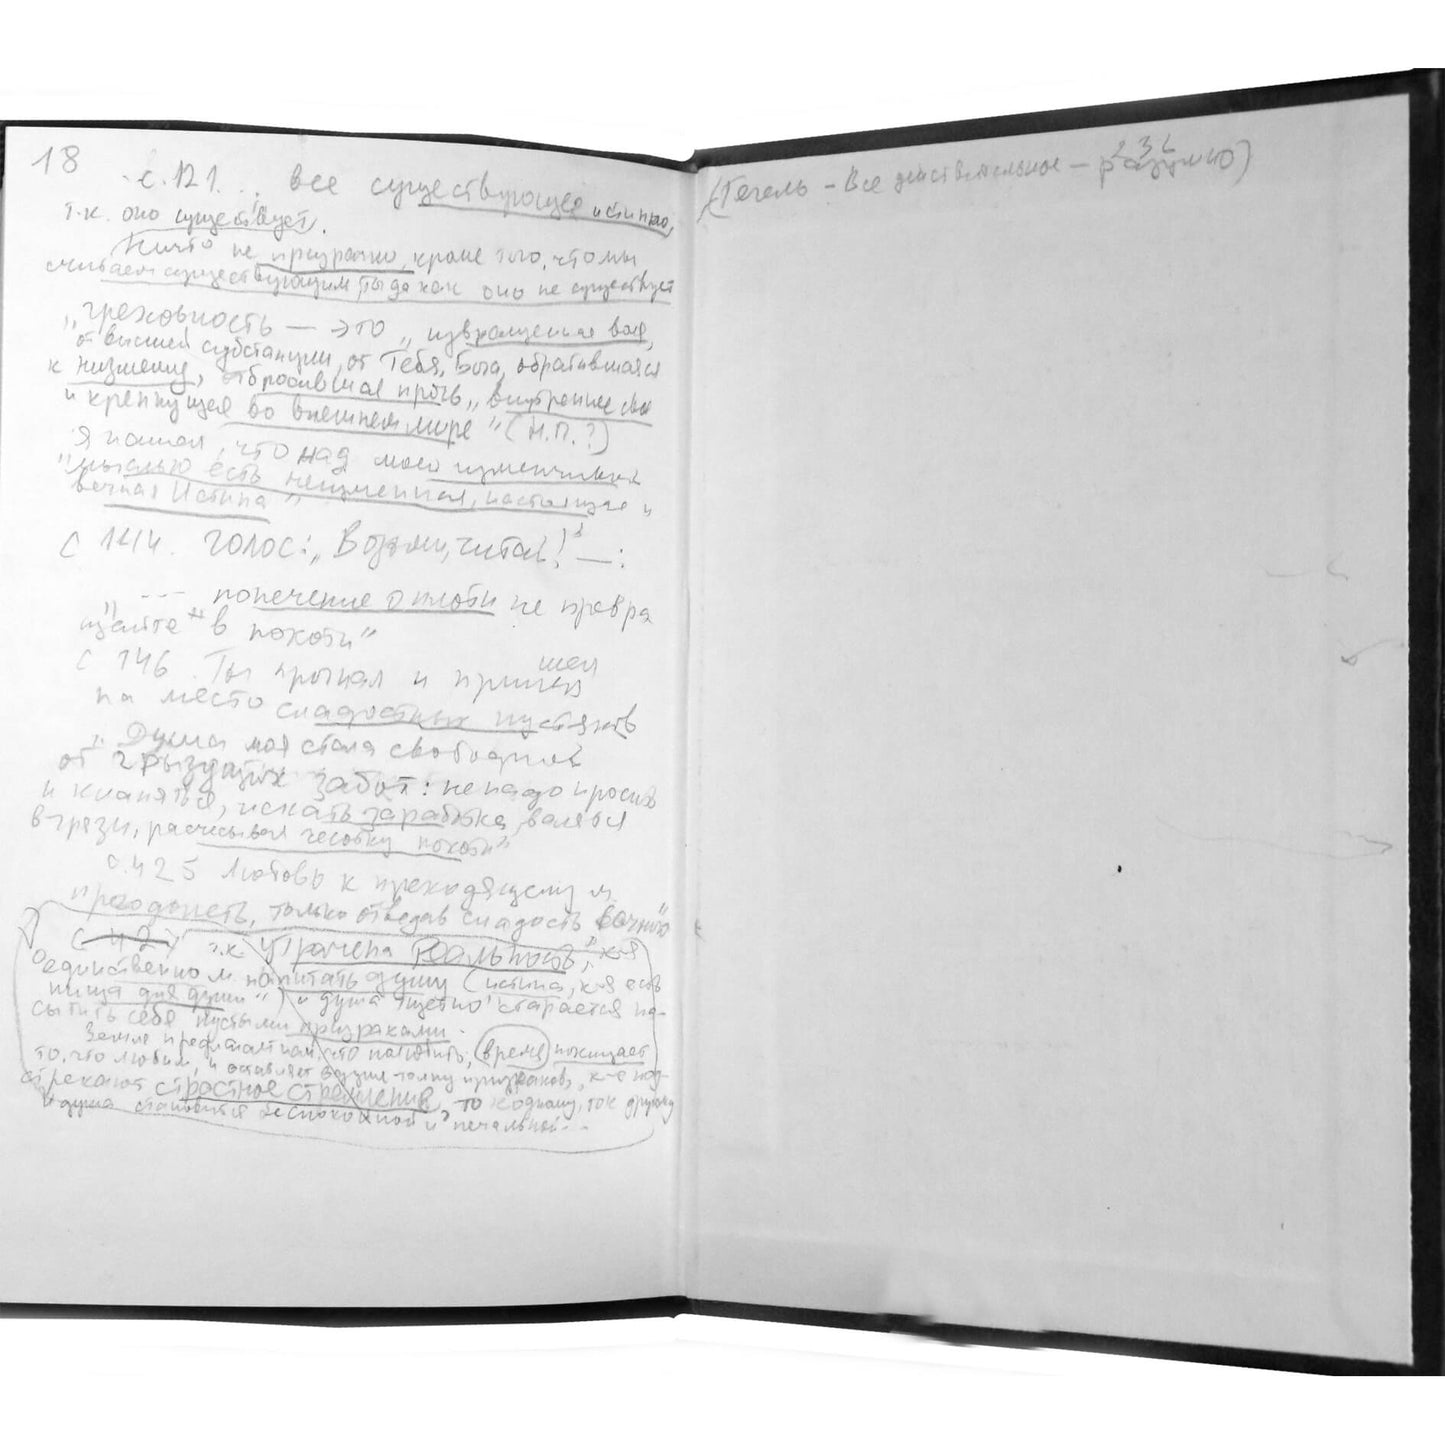 18
с.121... все существующее истинно,
т.к. оно существует.
Ничто не призрачно, кроме того, что мы
считаем существующим, тогда как оно не существует
„греховность — это „извращенная воля,
от высшей субстанции, от Тебя, Бога, обратившаяся
к низшему, отбросившая прочь „внутреннее свое
и крепнущая во внешнем мире" (Н.П.?)
Я нашел, что над моей изменчивой
"мыслью есть неизменная, настоящая и
вечная Истина"
с 144. голос: „Возьми, читай!" —:
„ --- попечение о плоти не превра
щайте " в похоти"
с 146 Ты прогнал и пришел
на место сладостных пустяков
„Душа моя стала свободной
от грызущих забот: не надо просить
и кланяться, искать заработка, валяться
в грязи, расчесывая чесотку похоти"
с.425 Любовь к преходящему м.
преодолеть, только отведав сладость вечного
(с 42) т.к. утрачена Реальность, к-я
единственно м. напитать душу (истина, к-я есть
пища для души") и душа тщетно старается на-
сытить себя пустыми призраками.
Земля предлагает нам, что полюбить, время похищает
то, что любим, и оставляет в душе толпу призраков, к-е под-
стрекают страстное стремление, то к одному, то к другому
и душа становится беспокойной и печальной...
(Гегель – Все действительное – разумно)